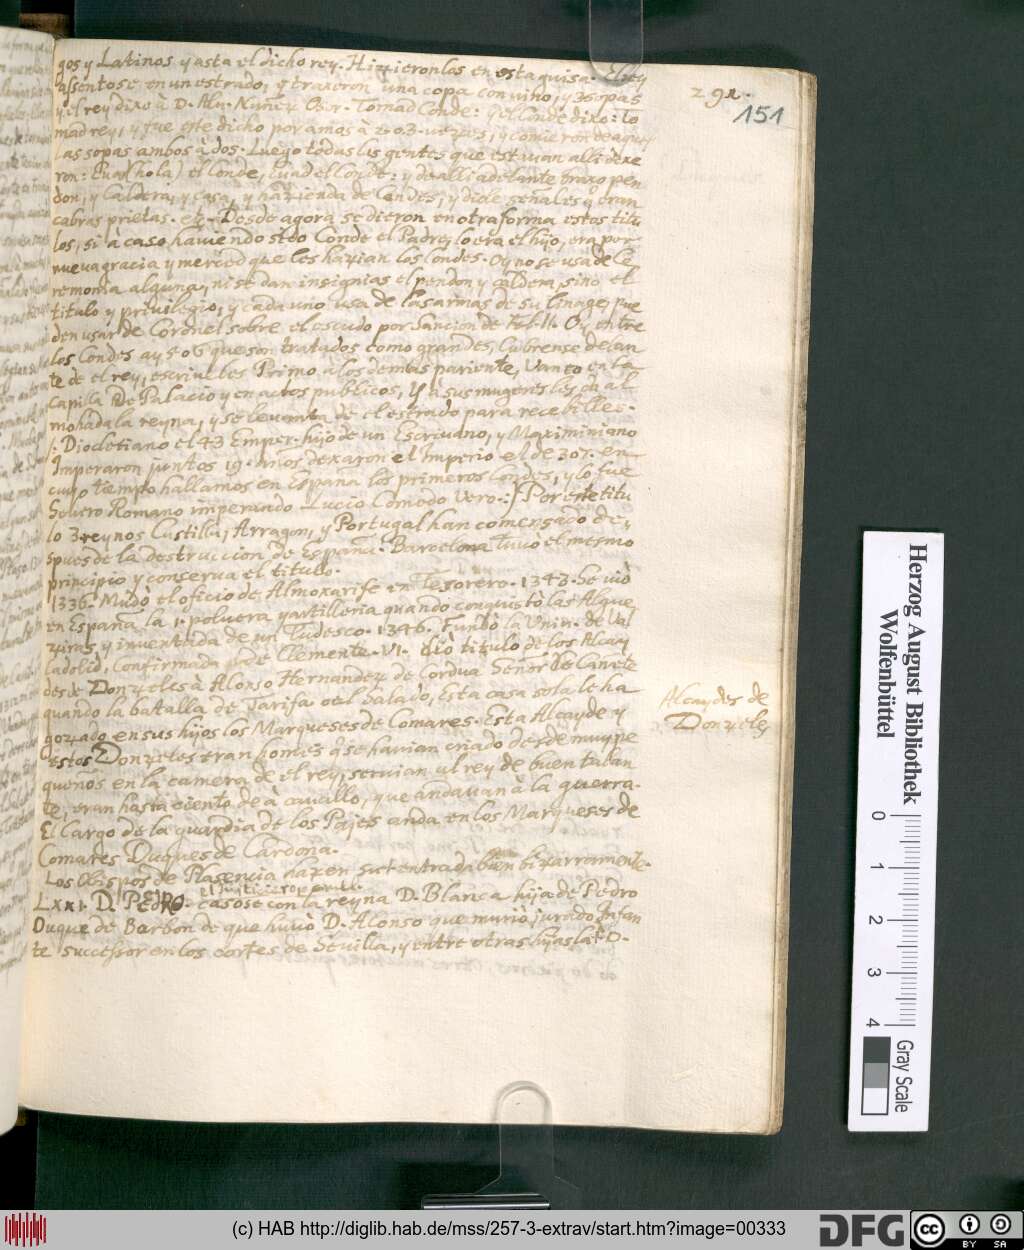 gos y Latinos y asta el dicho rey. Hizieronlos en esta guisa. El rey
assentose en un estrado, y traxeron una copa con vino, y 3 sopas
y el rey dixo à D. Alv. Nuñez Osor. Tomad Conde: y el Conde dixo: To
mad rey, y fue este dicho por amos à 2 o 3 vezes, y comieron de aque
las sopas ambos à dos. Luego todas las gentes que estavan alli dixe
ron: Evad (hola) el Conde, Evad el Conde: y de alli adelante traxo pen
don, y Caldera, y casa, y hazienda de Condes, y diole señales q eran
cabras prietas. etz. Desde agora se dieron en otra forma estos titu
los, si à caso haviendo sido Conde el Padre, lo era el hijo, era por
nueva gracia y merced que les hazian los Condes. Oy no se usa de Ce
remonia alguna, ni se dan insignias el pendon y caldera, sino el
titulo y privilegio, y cada uno usa de las armas de su linage, pue
den usar de Coronel sobre el escudo por Sancion de Fel. II. Oy entre
los Condes ay 5 o 6 que son tratados como grandes, Cubrense delan
te de el rey, escriveles Primo, a los demas pariente, Banco en la
Capilla de Palacio y en actos publicos, y à sus mugeres les da al
mohada la reyna, y se levanta de el estrado para recebilles.
Diocletiano el 43 Emper. hijo de un Escrivano, y Maximiniano
imperaron juntos 19. años dexaron el Imperio el de 307. en
cuyo tiempo hallamos en España los primeros Condes, y lo fue
Severo Romano imperando Lucio Comodo Vero. Por este titu
lo 3 reynos Castilla, Arragon, y Portugal han comensado de-
spues de la destruccion de España. Barcelona tuvo el mesmo
principio y conserva el titulo.
1336. Mudò el oficio de Almoxarife en Tesorero. 1343. Se viò
en España la 1. polvera y artilleria quando conquistò las Alge
ziras, y inventada de un Tudesco. 1346. Fundò la Univ. de Val
ladolid. Confirmada p de Clemente. VI. diò titulo de los Alcay
desde Donzeles à Alonso Hernandez de Cordua Señor de Cañete
quando la batalla de Tarifa o el Salado, Esta casa sola le ha
gozado en sus hijos los Marqueses de Comares. Esta Alcayde y
estos Donzeles eran homes q se havian criado desde muy pe
queños en la camera de el rey, servian al rey de buen talan
te, eran hasta ciento de à cavallo, que andavan à la guerra.
El Cargo de la guardia de los Pajes anda en los Marqueses de
Comares Duques de Cardona.
Los Obispos de Plasencia hazen su entrada bien bizarramente.
el Justiciero
LXXI. D. PEDRO. casose con la reyna D. Blanca hija de Pedro
Duque de Borbon de que huvò D. Alonso que muriò jurado Infan
te successor en los cortes de Sevilla, y entre otras hijas la D.
291.
151
Alcaydes de
Donzeles
Herzog August Bibliothek
Wolfenbüttel
0
1
2
3
4
Gray Scale
(c) HAB http://diglib.hab.de/mss/257-3-extrav/start.htm?image=00333
DFG
cc
BY SA